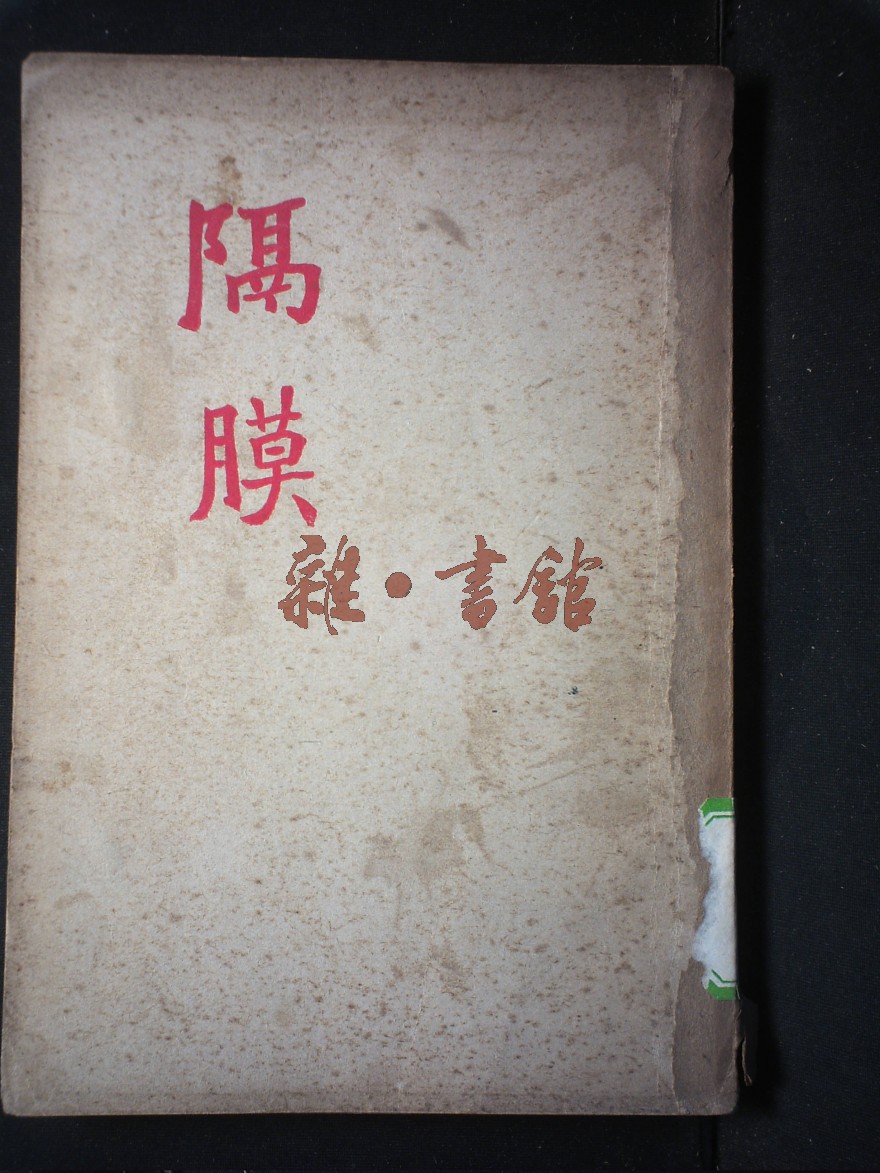 隔膜
雜·書館